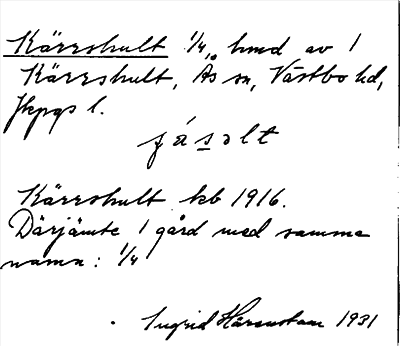 Kärrshult 1/4, hmd av 1
Kärrshult, Ås sn, Västbo hd,
Jkpgs l.
Kärrshult kb 1916.
Därjämte 1 gård med samma
namn: 1/4
Ingrid Härenstam 1931